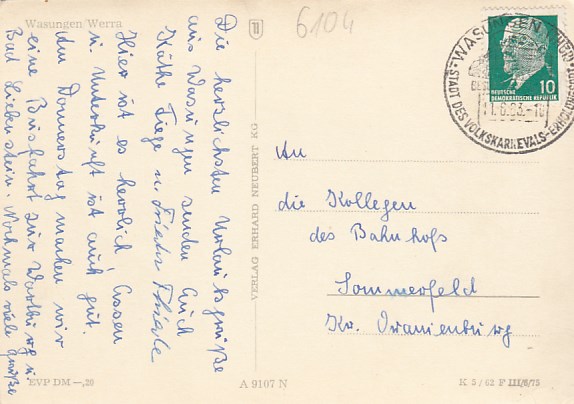 Wasungen/Werra
Die herzlichsten Urlaubsgrüße
aus Wasungen senden Euch
Käthe u.
Hier ist es herrlich, Essen
u. Unterkunft ist auch gut.
Am Donnerstag machen wir
eine Busfahrt zur Wartburg u.
Bad Liebenstein. Nochmals viele Grüße
EVP DM —,20
VERLAG ERHARD NEUBERT KG
A 9107 N
6104
WASUNGEN
STADT DES VOLKSKARNEVALS
DEUTSCHE
DEMOKRATISCHE REPUBLIK
10
An
die Kollegen
des Bahnhofs
Sommerfeld
Kr. Oranienburg
K 5/62 F III/6/75